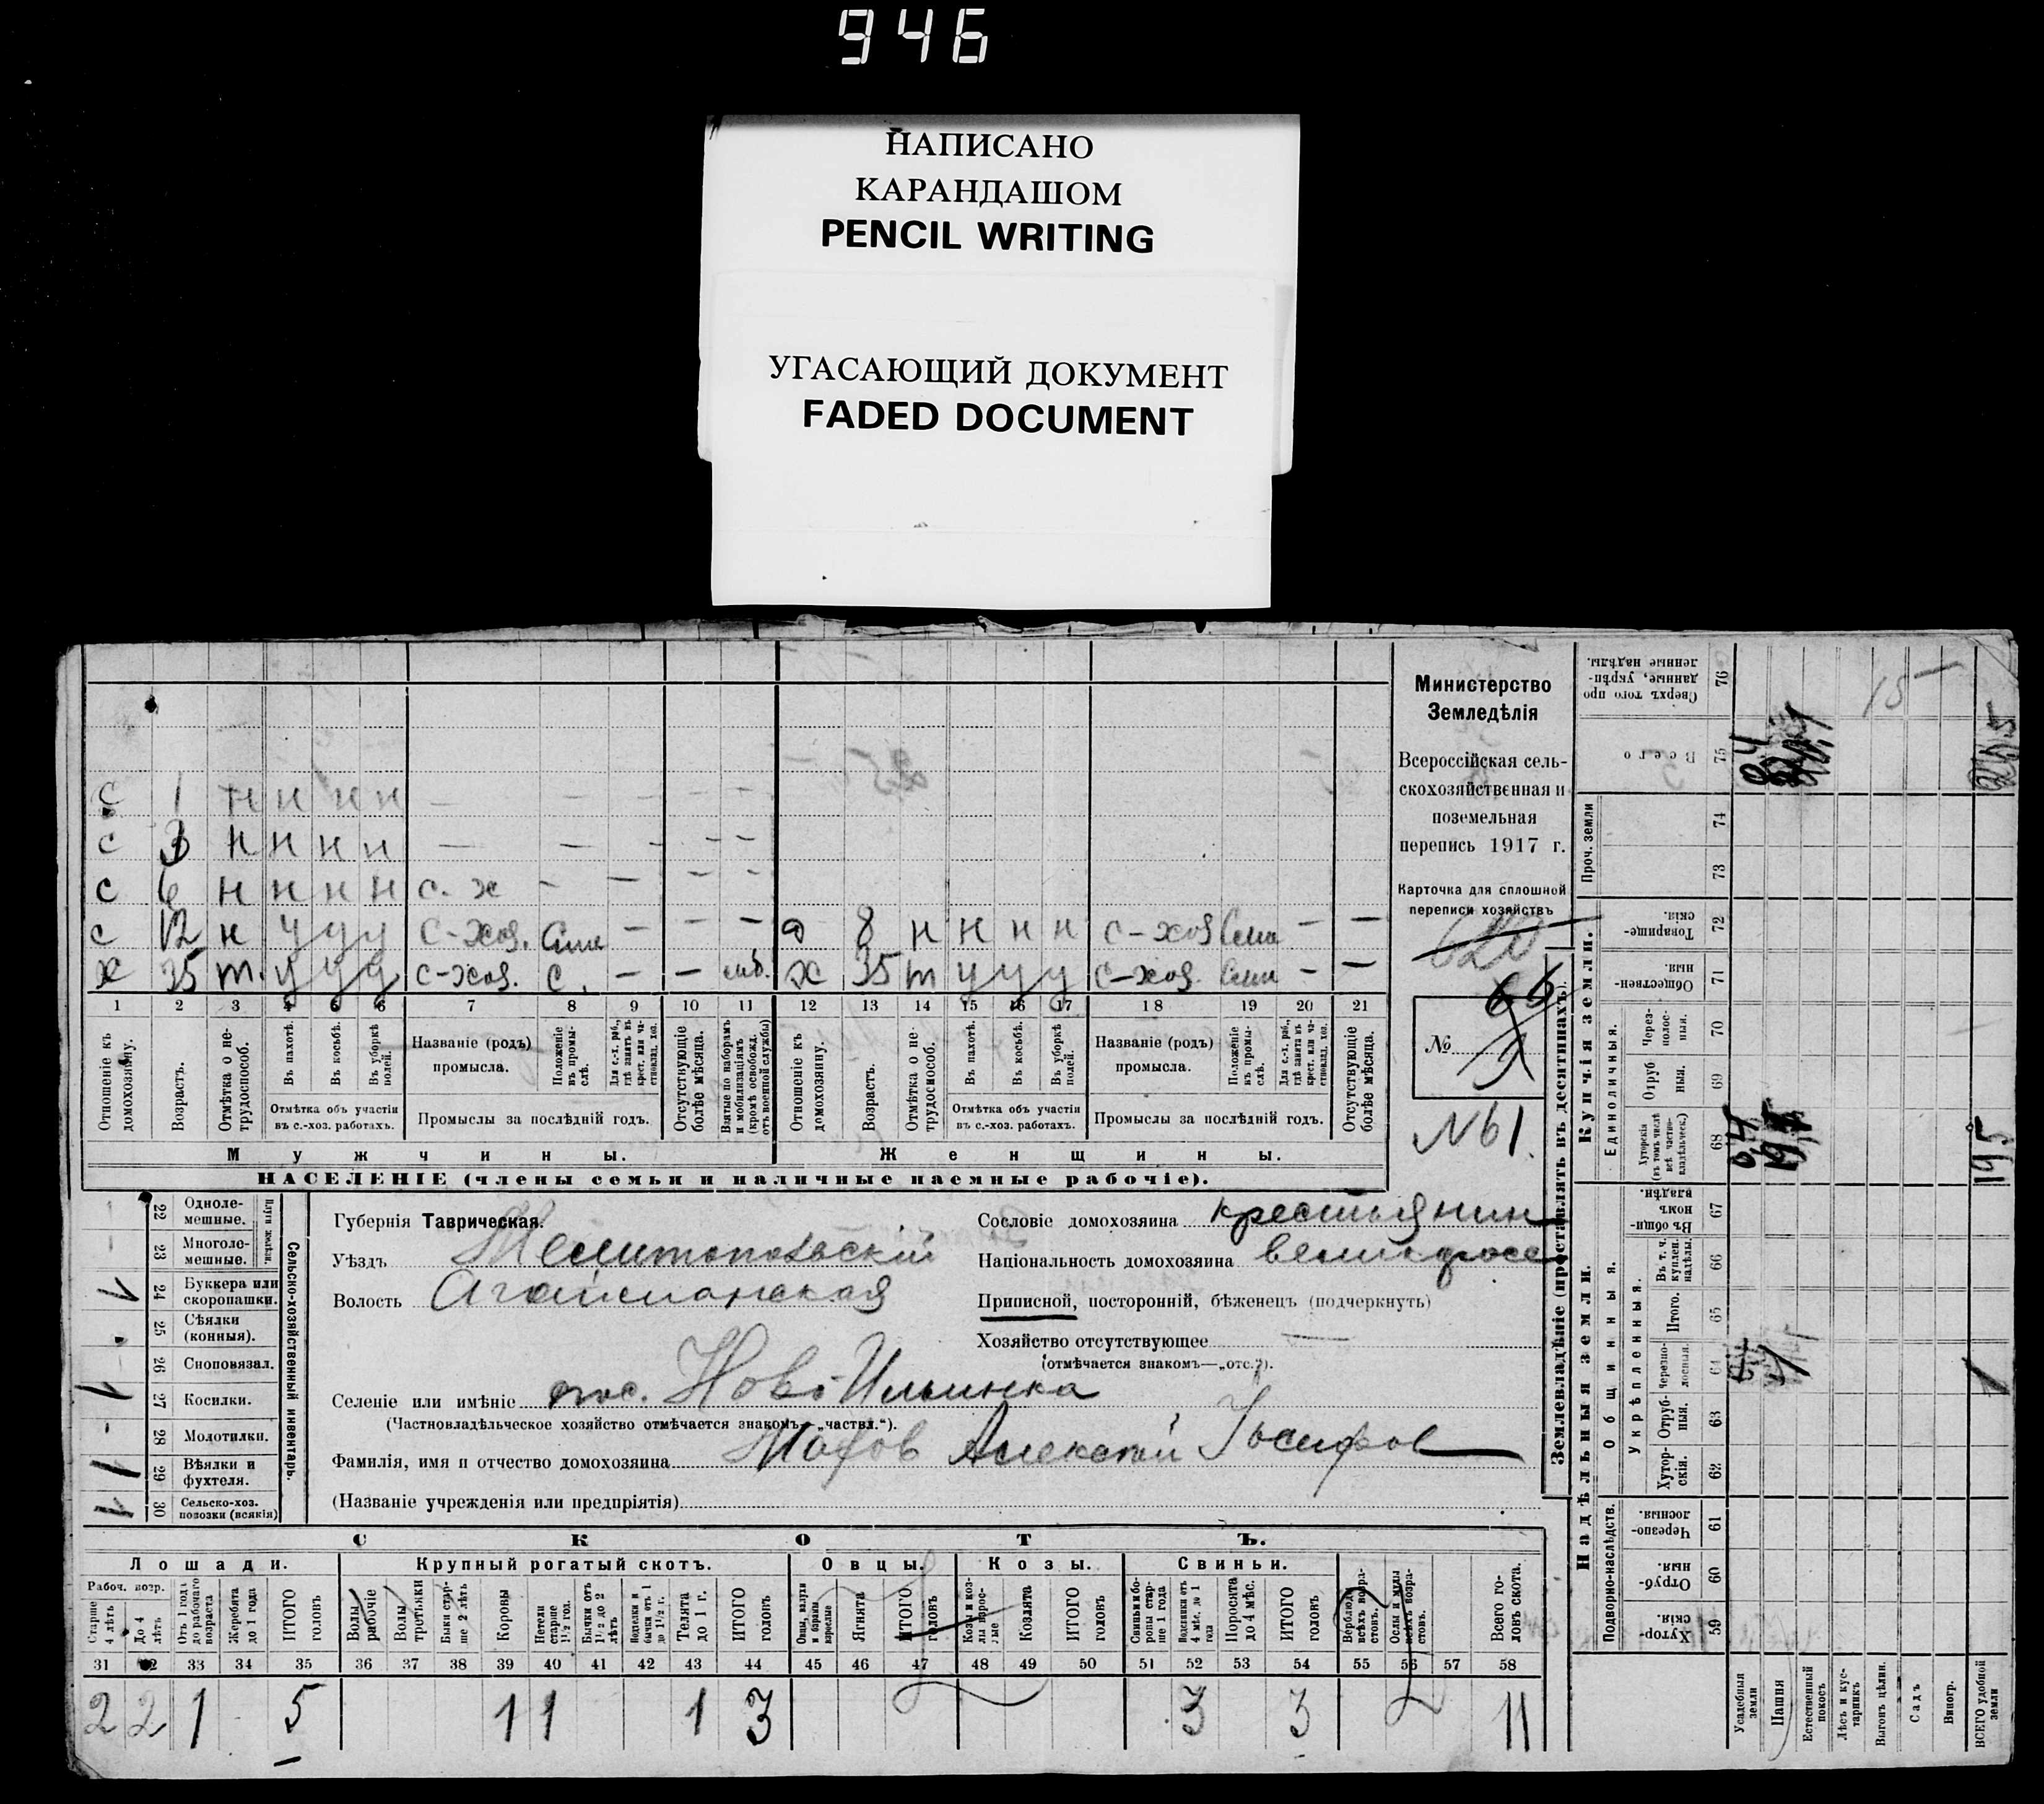 946
НАПИСАНО
КАРАНДАШОМ
PENCIL WRITING
УГАСАЮЩИЙ ДОКУМЕНТ
FADED DOCUMENT
с 1 н н н н — — — — —
с 3 н н н н — — — — —
с 6 н н н н с-х — — — —
с 12 н у у у с-хоз. — — — д 8 н н н н с-хоз — —
х 35 т. у у у с-хоз. с. — — х 35 т у у у с-хоз. — —
1 2 3 4 5 6 7 8 9 10 11 12 13 14 15 16 17 18 19 20 21
Отношеніе къ домохозяину.
Возрастъ.
Отмѣтка о не-трудоспособ.
Въ пахотѣ.
Въ косьбѣ.
Въ уборкѣ полей.
Отмѣтка объ участіи въ с.-хоз. работахъ.
Названіе (родъ) промысла.
Положеніе въ промы-слѣ.
Для с.-х. раб., гдѣ занятъ въ крест. или ча-стновлад. хоз.
Промыслы за послѣдній годъ.
Отсутствующіе болѣе мѣсяца.
Взятые по наборамъ и мобилизаціямъ (кромѣ освобожд. отъ военной службы)
Отношеніе къ домохозяину.
Возрастъ.
Отмѣтка о не-трудоспособ.
Въ пахотѣ.
Въ косьбѣ.
Въ уборкѣ полей.
Отмѣтка объ участіи въ с.-хоз. работахъ.
Названіе (родъ) промысла.
Положеніе въ промы-слѣ.
Для с.-х. раб., гдѣ занята въ крест. или ча-стновлад. хоз.
Промыслы за послѣдній годъ.
Отсутствующіе болѣе мѣсяца.
Мужчины. Женщины.
НАСЕЛЕНІЕ (члены семьи и наличные наемные рабочіе).
Министерство
Земледѣлія
Всероссійская сель-
скохозяйственная и
поземельная
перепись 1917 г.
Карточка для сплошной
переписи хозяйствъ
№
N61.
22 Одноле-мешные.
23 Многоле-мешные.
24 Буккера или скоропашки.
25 Сѣялки (конныя).
26 Сноповязал.
27 Косилки.
28 Молотилки.
29 Вѣялки и фухтеля.
30 Сельско-хоз. повозки (всякія)
Сельско-хозяйственный инвентарь.
Губернія Таврическая.
Уѣздъ Мелитопольскій
Волость Агайманская
Сословіе домохозяина крестьянин
Національность домохозяина великоросс
Приписной, посторонній, бѣженецъ (подчеркнуть)
Хозяйство отсутствующее —
(отмѣчается знакомъ—„отс.").
Селеніе или имѣніе пос. Ново Ильинка
(Частновладѣльческое хозяйство отмѣчается знакомъ—„частвл.").
Фамилія, имя и отчество домохозяина Алексѣй Іосифов
(Названіе учрежденія или предпріятія)
СКОТЪ.
Лошади. Крупный рогатый скотъ. Овцы. Козы. Свиньи.
Рабоч. возр.
Старше 4 лѣтъ
До 4 лѣтъ
Отъ 1 года до рабочаго возраста
Жеребята до 1 года
ИТОГО головъ
Волы рабочіе
Волы третьяки
Быки стар-ше 2 лѣтъ
Коровы
Нетели старше 1½ год.
Бычки отъ 1½ до 2 лѣтъ
Телята до 1 г.
ИТОГО головъ
Овцы, валухи и бараны взрослые
Ягнята
ИТОГО головъ
Козы и коз-лы взрос-лые
Козлята
ИТОГО головъ
Свиньи и бо-ровы стар-ше 1 года
Подсвинки отъ 4 мѣс. до 1 года
Поросята до 4 мѣс.
ИТОГО головъ
Верблюды всѣхъ возра-стовъ.
Ослы и мулы всѣхъ возра-стовъ.
Всего го-ловъ скота.
31 32 33 34 35 36 37 38 39 40 41 42 43 44 45 46 47 48 49 50 51 52 53 54 55 56 57 58
2 2 1 5 1 1 1 3 3 3 11
Землевладѣніе (проставлять въ десятинахъ).
Сверхъ того про-данные, укрѣп-ленные надѣлы. 76
Всего 75
Проч. земли 74 73
Купчія земли.
Товарище-скія. 72
Обществен-ныя. 71
Единоличныя.
Через-полос-ныя. 70
Отруб ныя. 69
Хуторскія (въ томъ числѣ всѣ частно-владѣльческ.) 68
Надѣльныя земли.
Общинныя.
Въ общи-номъ владѣн. 67
Укрѣпленныя.
Въ т. ч. куплен. надѣлы. 66
Итого. 65
Черезпо-лосныя. 64
Отруб-ныя. 63
Хутор-скія. 62
Подворно-наслѣдств.
Черезпо-лосныя. 61
Отруб-ныя. 60
Хутор-скія. 59
Усадебныя земли
Пашня
Естественный покосъ
Лѣсъ и кус-тарникъ
Выгонъ цѣлин.
Садъ
Виногр.
ВСЕГО удобной земли
15
0,4
195
1